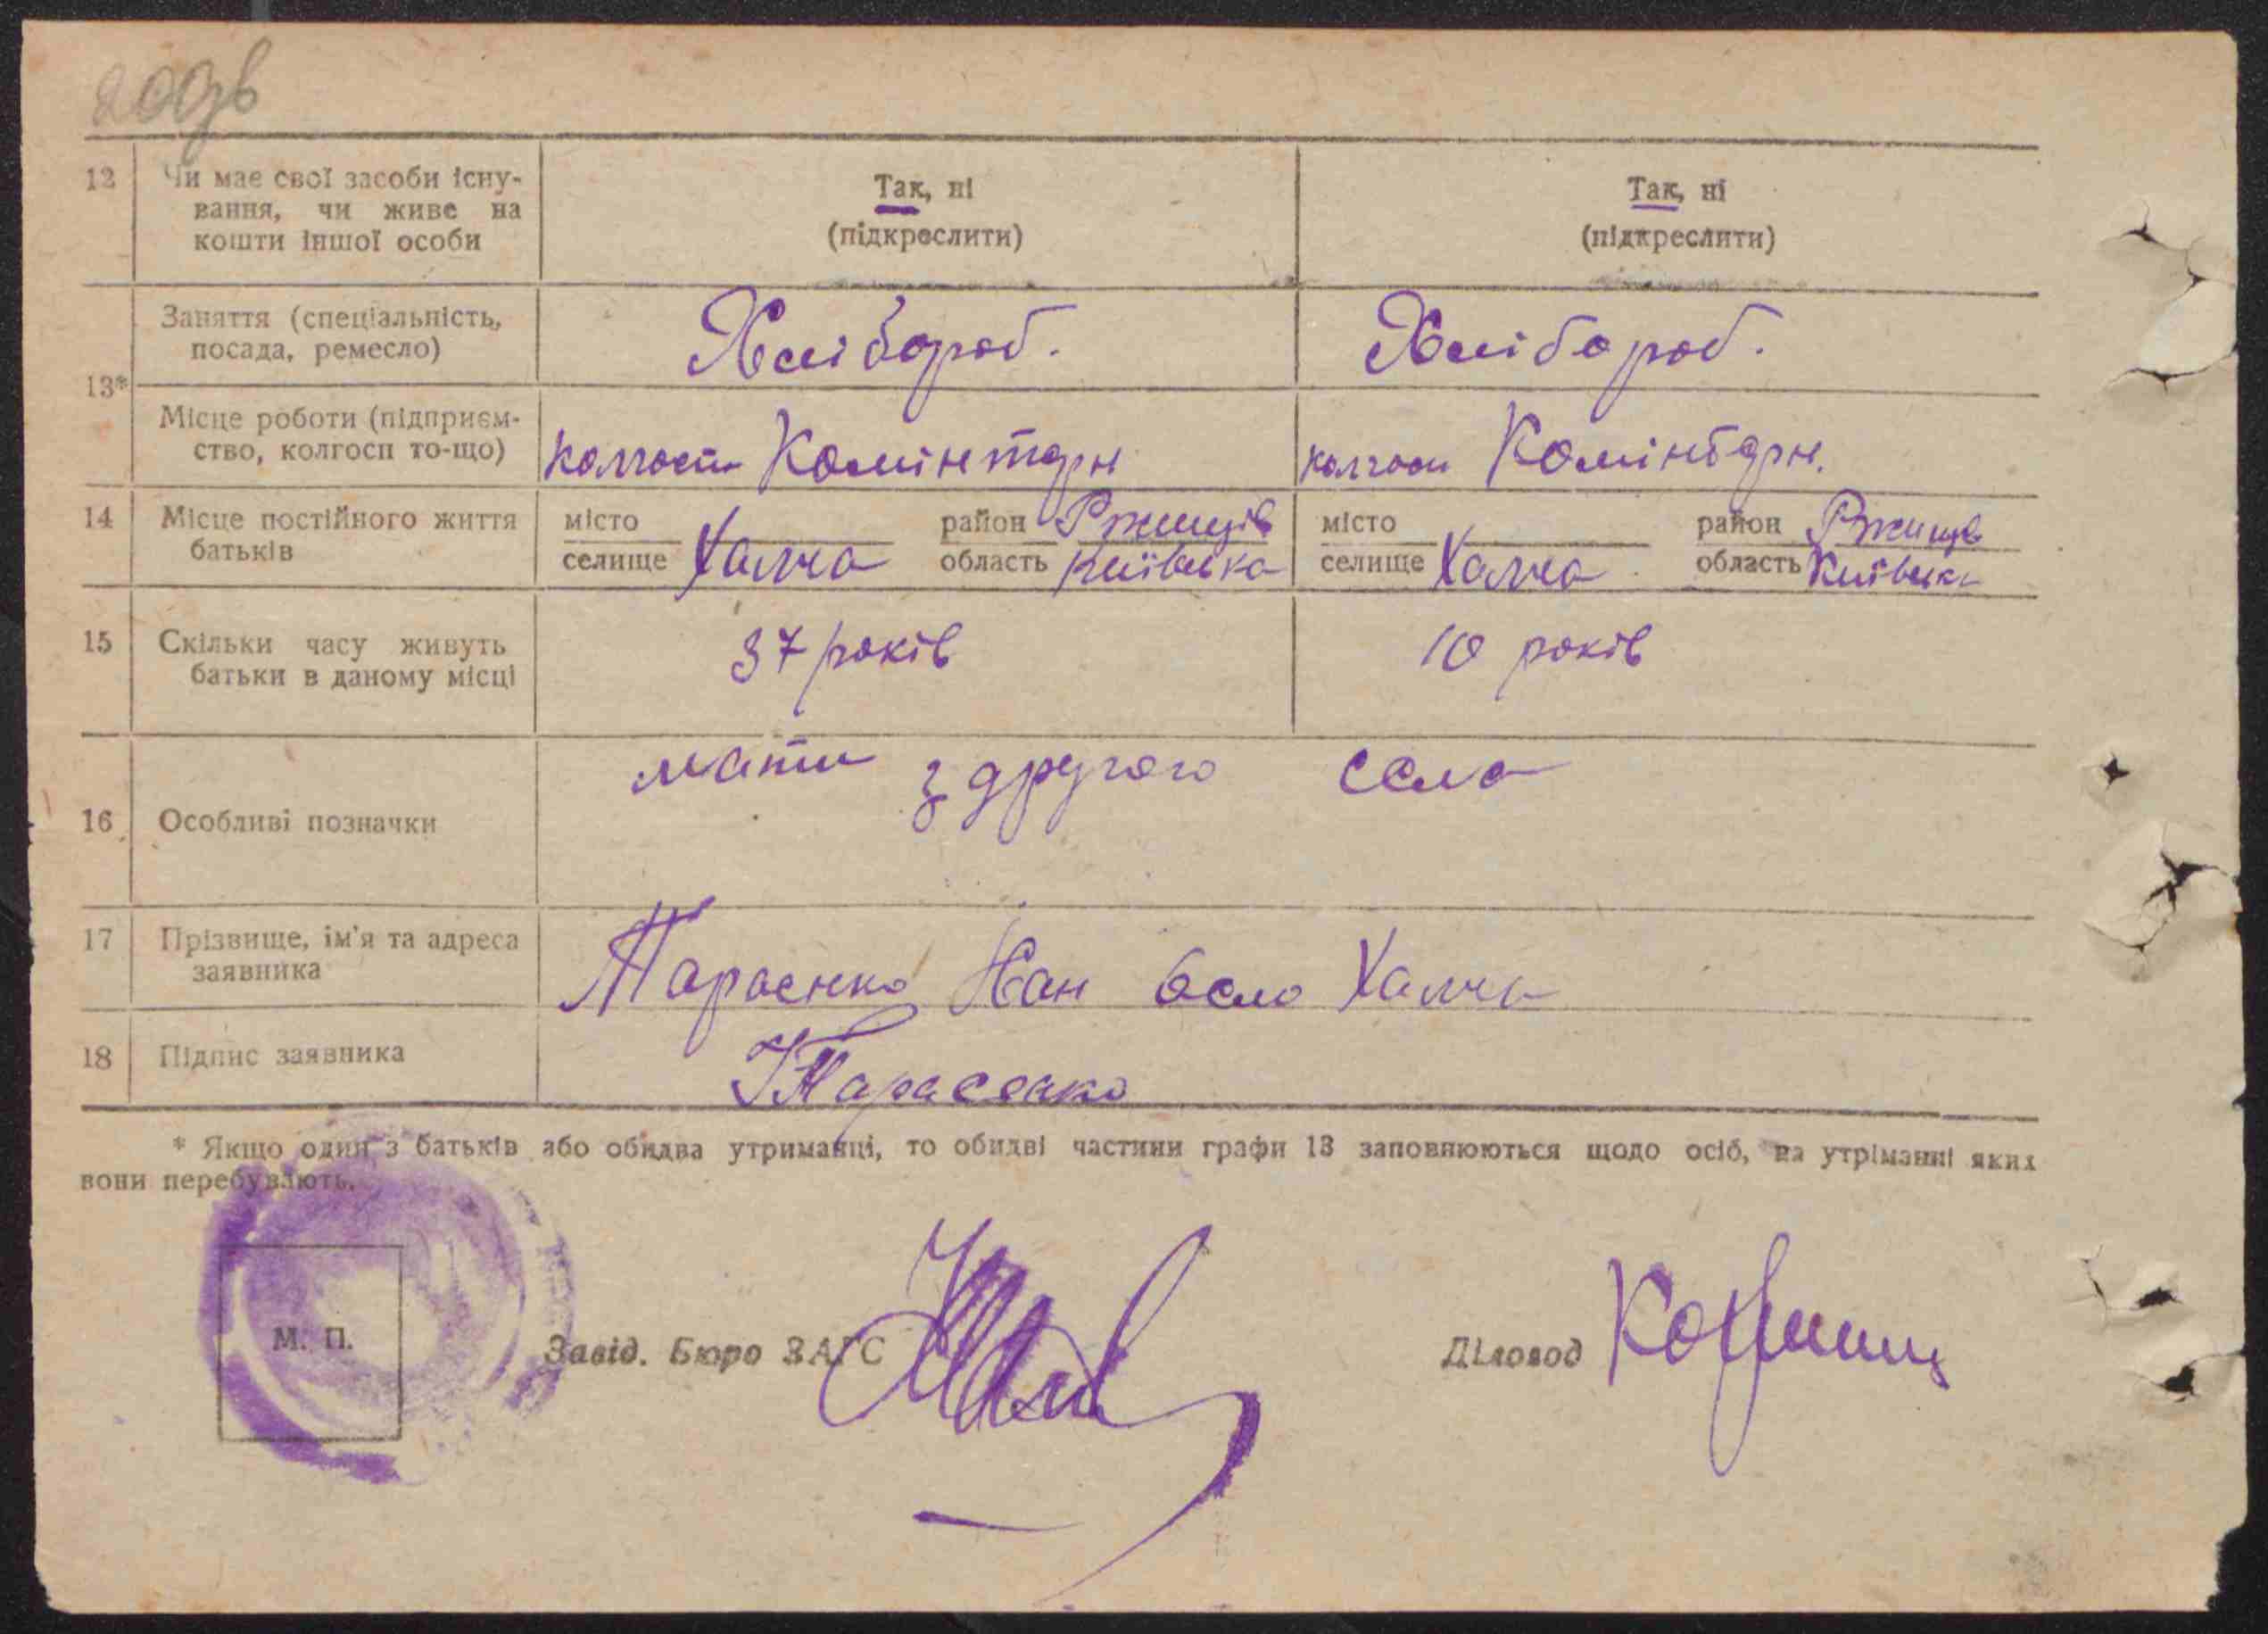 12 Чи має свої засоби існу-
вання, чи живе на
кошти іншої особи
Так, ні
(підкреслити)
Так, ні
(підкреслити)
13*
Заняття (спеціальність,
посада, ремесло)
Хлібороб.
Хлібороб.
Місце роботи (підприєм-
ство, колгосп то-що)
колгосп Комінтерн
колгосп Комінтерн.
14 Місце постійного життя
батьків
місто
селище Халча
район Ржищів
область Київська
місто
селище Халча
район Ржищів
область Київська
15 Скільки часу живуть
батьки в даному місці
37 років
10 років
16 Особливі позначки
мати з другого села
17 Прізвище, ім'я та адреса
заявника
Тарасенко село Халча
18 Підпис заявника
Тарасенко
* Якщо один з батьків або обидва утриманці, то обидві частини графи 13 заповнюються щодо осіб, на утріманні яких
вони перебувають.
М. П.
Завід. Бюро ЗАГС
Діловод